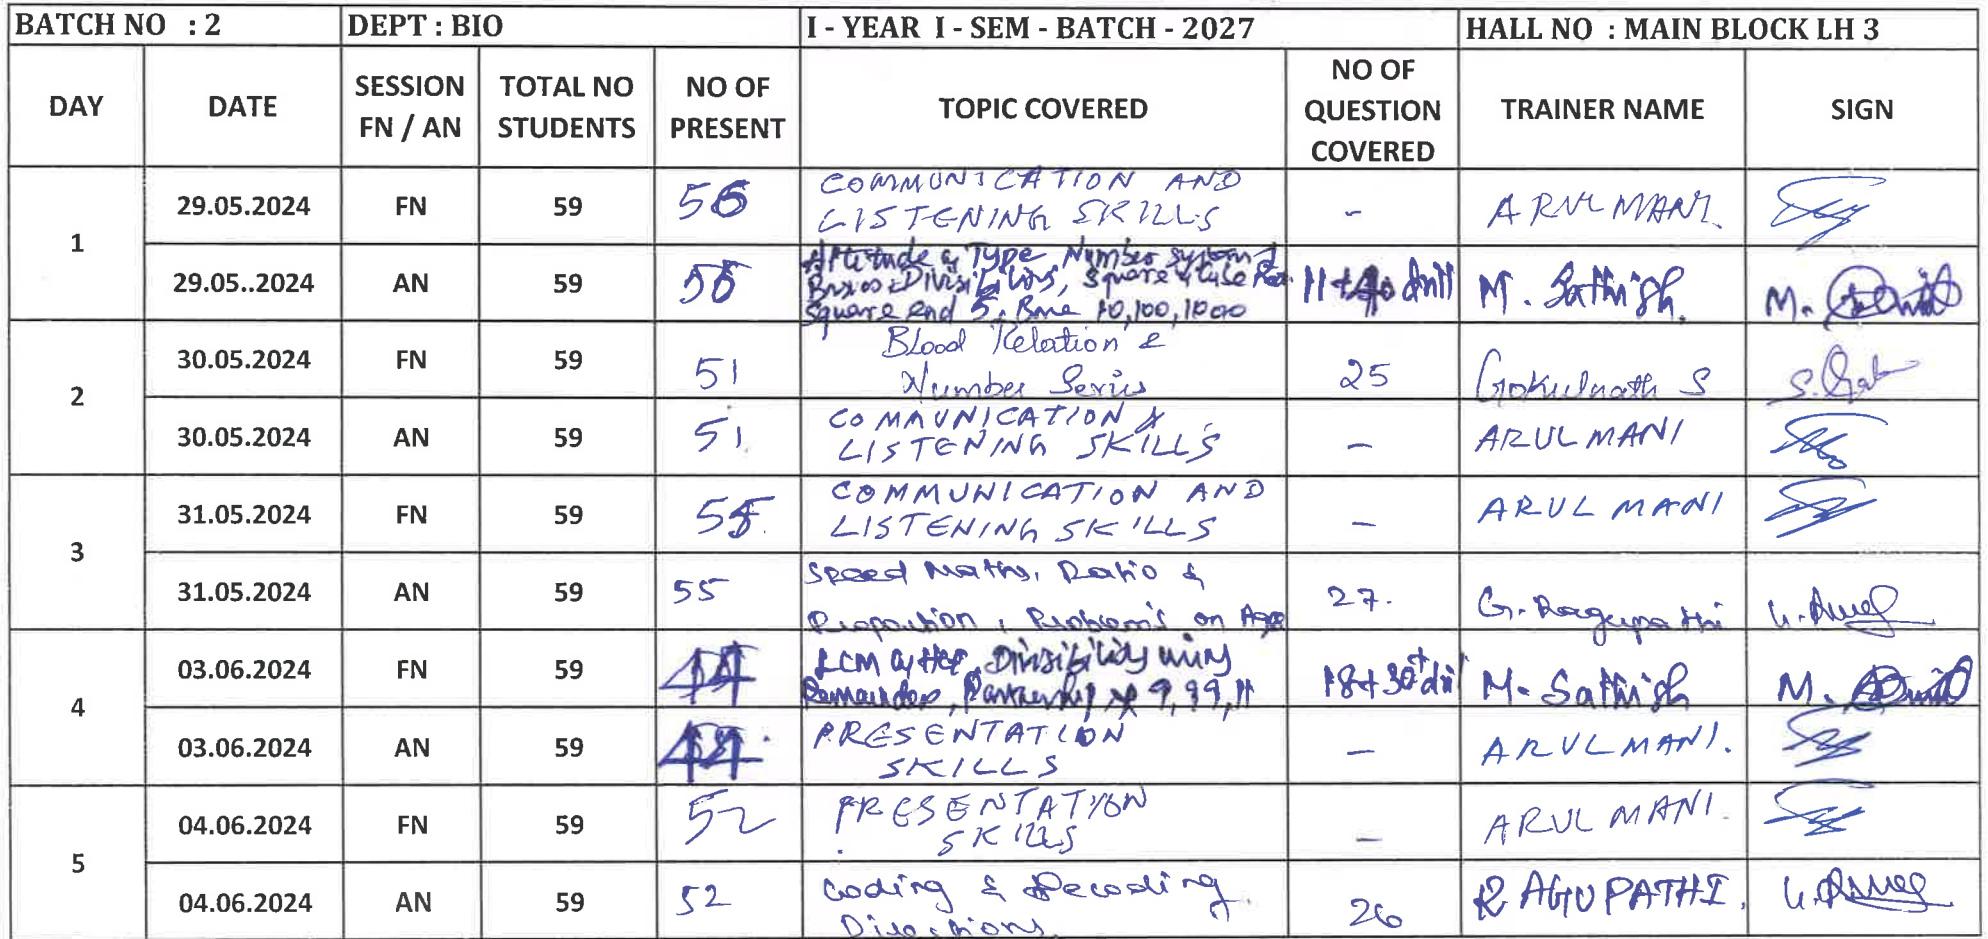 BATCH NO : 2 DEPT : BIO I - YEAR I - SEM - BATCH - 2027 HALL NO : MAIN BLOCK LH 3
DAY DATE SESSION FN / AN TOTAL NO STUDENTS NO OF PRESENT TOPIC COVERED NO OF QUESTION COVERED TRAINER NAME SIGN
1 29.05.2024 FN 59 56 COMMUNICATION AND LISTENING SKILLS - ARUL MANI.
29.05..2024 AN 59 Aptitude & Type Number system Divisibility, Square & Cube Square end 5, Base 10,100,1000 11+40 drill M. Sathish. M.
2 30.05.2024 FN 59 51 Blood Relation & Number Series 25 Gokulnath S
30.05.2024 AN 59 51 COMMUNICATION & LISTENING SKILLS - ARUL MANI
3 31.05.2024 FN 59 COMMUNICATION AND LISTENING SKILLS - ARUL MANI
31.05.2024 AN 59 55 Speed Maths, Ratio & Proportion, Problems on Age 27. G. Ragupathi
4 03.06.2024 FN 59 LCM & HCF, Divisibility using Remainder, Partnership 9,99,11 18+30 M. Sathish M.
03.06.2024 AN 59 PRESENTATION SKILLS - ARUL MANI.
5 04.06.2024 FN 59 52 PRESENTATION SKILLS - ARUL MANI.
04.06.2024 AN 59 52 Coding & Decoding Directions 26 RAGUPATHI.